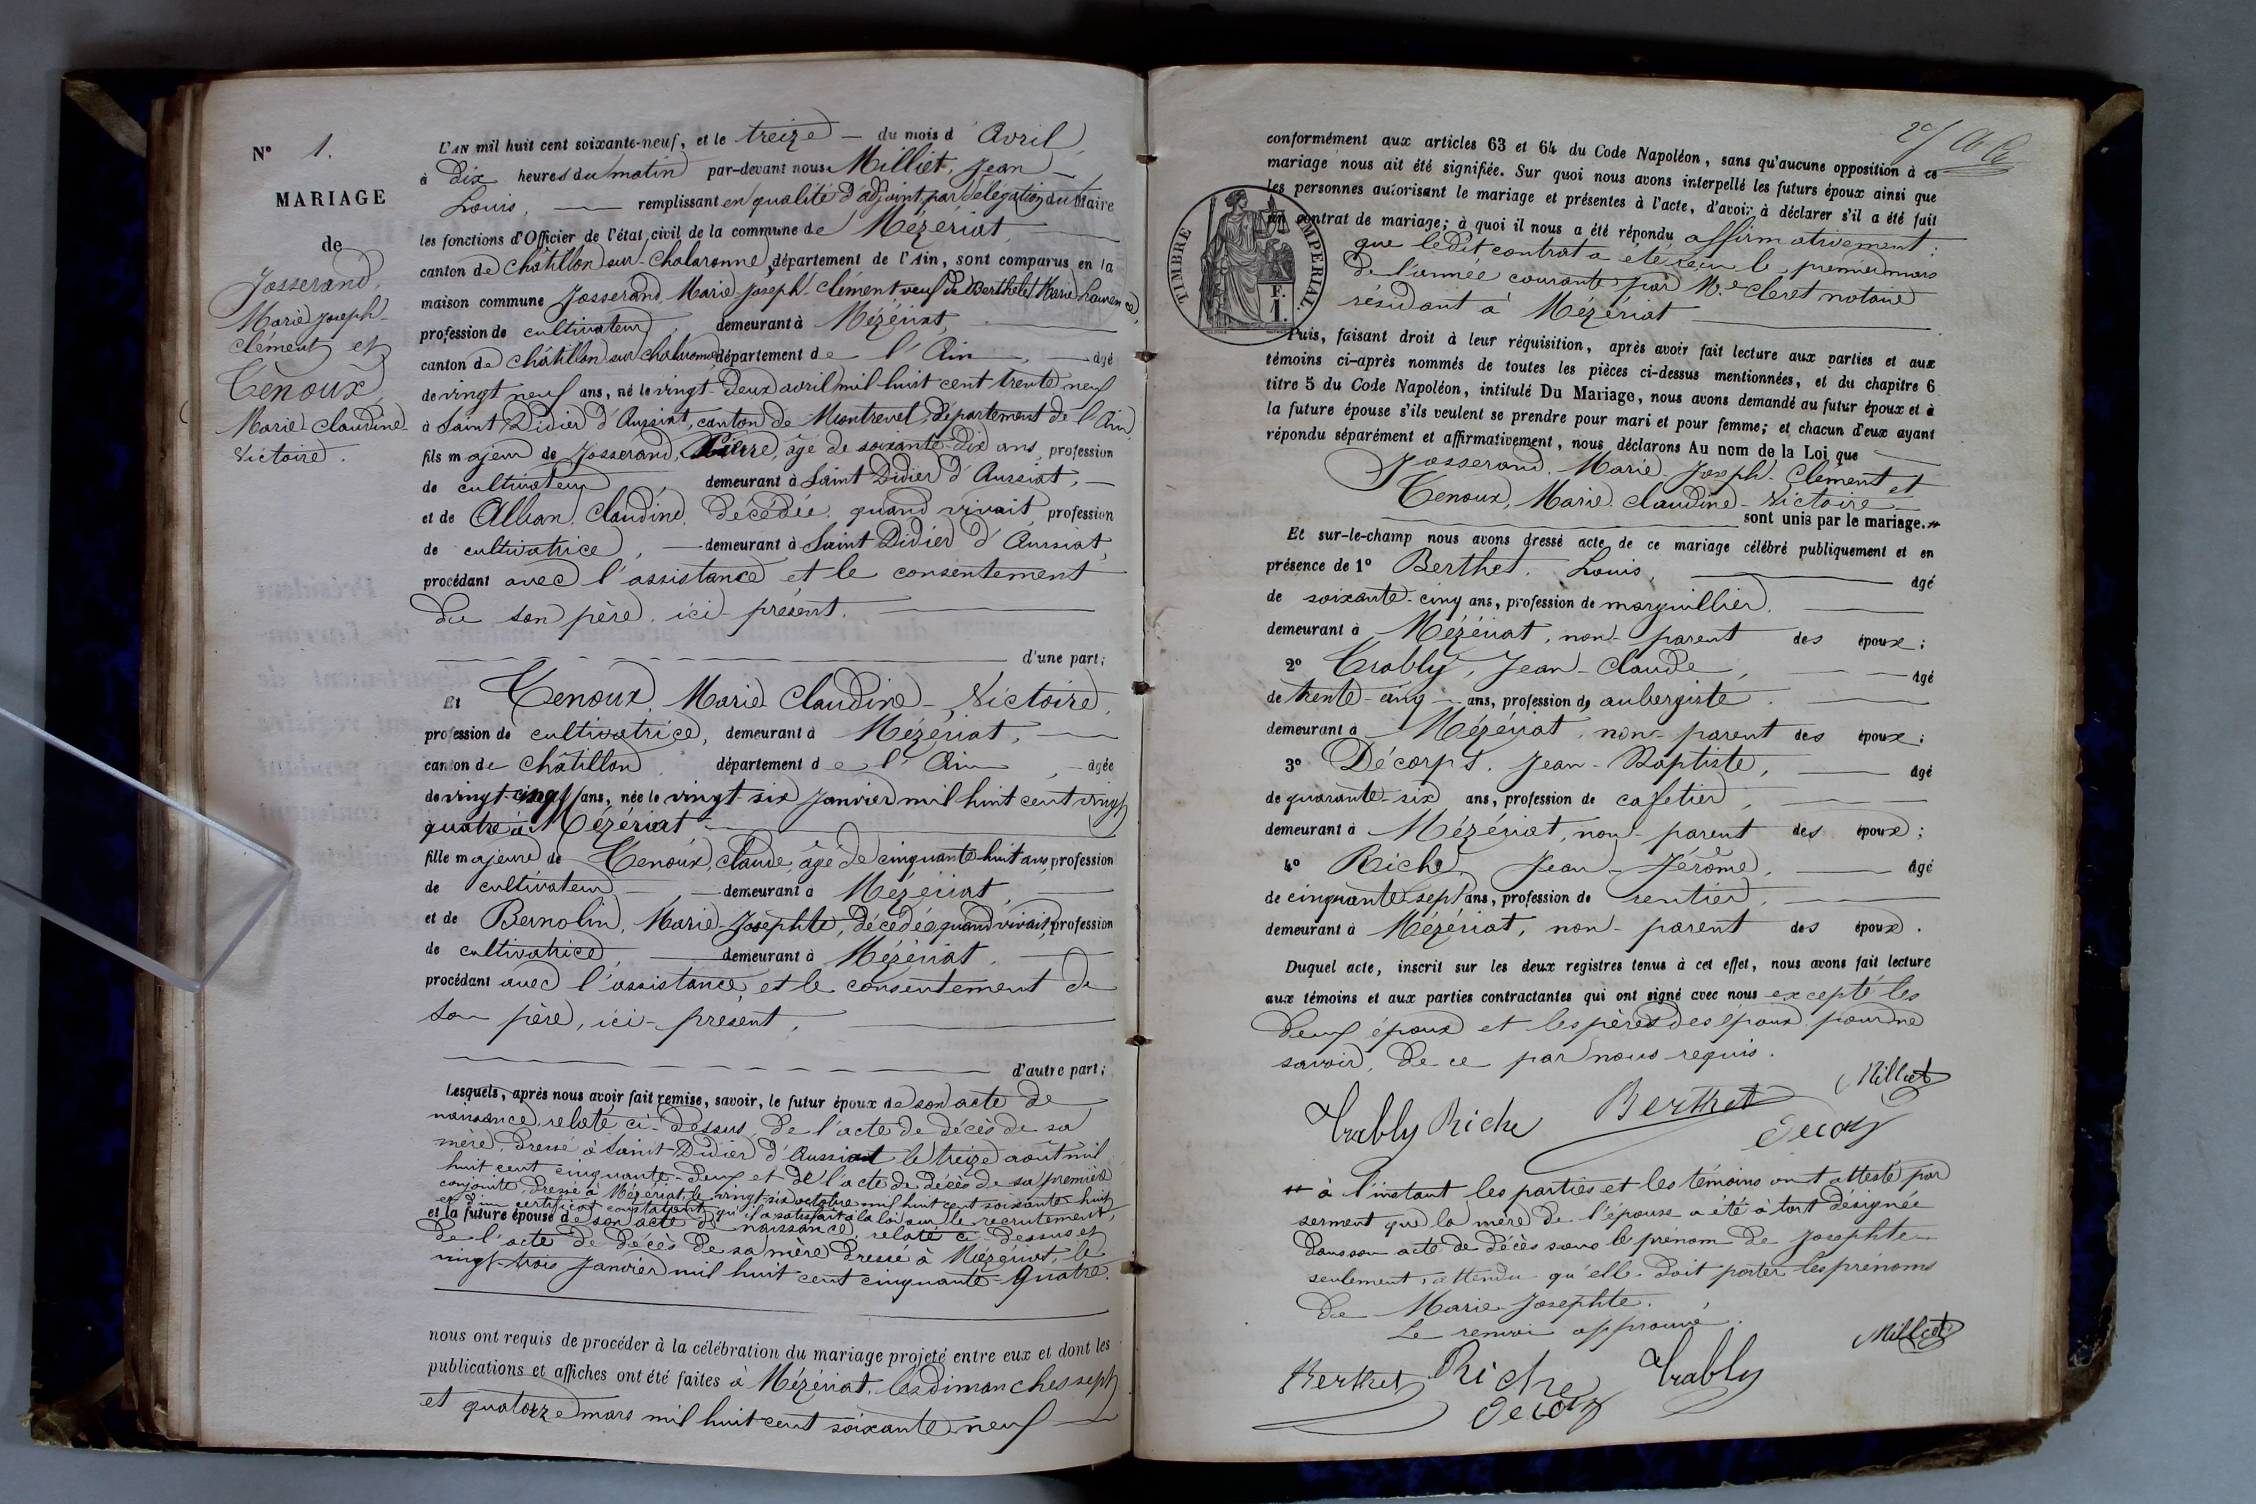 N° 1.
MARIAGE
de
Josserand,
Marie Joseph-
Clément et
Tenoux,
Marie-Claudine-
Victoire.
L'AN mil huit cent soixante-neuf, et le treize — du mois d'Avril,
à dix heures du matin par-devant nous Milliet, Jean-
Louis, — remplissant en qualité d'adjoint par délégation du Maire
les fonctions d'Officier de l'état civil de la commune de Mézériat,
canton de Châtillon sur Chalaronne, département de l'Ain, sont comparus en la
maison commune Josserand, Marie-Joseph-Clément veuf de Berthelet Marie Laurence,
profession de cultivateur, demeurant à Mézériat,
canton de Châtillon sur chalaronne, département de l'Ain, — âgé
de vingt neuf ans, né le vingt-deux avril mil huit cent trente neuf
à Saint Didier d'Aussiat, canton de Montrevel, département de l'Ain,
fils majeur de Josserand, Pierre, âgé de soixante-dix ans, profession
de cultivateur, demeurant à Saint Didier d'Aussiat, —
et de Alban, Claudine, décédée, quand vivait, profession
de cultivatrice, — demeurant à Saint Didier d'Aussiat,
procédant avec l'assistance et le consentement
de son père, ici-présent.
d'une part;
Et Tenoux, Marie Claudine-Victoire,
profession de cultivatrice, demeurant à Mézériat,
canton de Châtillon, département de l'Ain, — âgée
de vingt-cinq ans, née le vingt-six Janvier mil huit cent vingt
quatre à Mézériat
fille majeure de Tenoux, Claude, âgé de cinquante huit ans, profession
de cultivateur — demeurant à Mézériat,
et de Bernolin, Marie-Josephte, décédée quand vivait, profession
de cultivatrice, — demeurant à Mézériat,
procédant avec l'assistance et le consentement de
son père, ici-présent,
d'autre part;
Lesquels, après nous avoir fait remise, savoir, le futur époux de son acte de
naissance relaté ci-dessus, de l'acte de décès de sa
mère, dressé à Saint-Didier d'Aussiat le treize août mil
huit cent cinquante-deux et de l'acte de décès de sa première
conjointe, dressé à Mézériat, le vingt-six octobre mil huit cent soixante-huit
et d'un certificat constatant qu'il a satisfait à la loi sur le recrutement,
et la future épouse de son acte de naissance, relaté ci-dessus et
de l'acte de décès de sa mère dressé à Mézériat, le
vingt-trois Janvier mil huit cent cinquante-quatre.
nous ont requis de procéder à la célébration du mariage projeté entre eux et dont les
publications et affiches ont été faites à Mézériat, les dimanches sept
et quatorze mars mil huit cent soixante neuf —
conformément aux articles 63 et 64 du Code Napoléon, sans qu'aucune opposition à ce
mariage nous ait été signifiée. Sur quoi nous avons interpellé les futurs époux ainsi que
les personnes autorisant le mariage et présentes à l'acte, d'avoir à déclarer s'il a été fait
un contrat de mariage; à quoi il nous a été répondu affirmativement:
que ledit contrat a été reçu le premier mars
de l'année courante par Me Cleret notaire
résidant à Mézériat
TIMBRE IMPERIAL.
F.
1.
Puis, faisant droit à leur réquisition, après avoir fait lecture aux parties et aux
témoins ci-après nommés de toutes les pièces ci-dessus mentionnées, et du chapitre 6
titre 5 du Code Napoléon, intitulé Du Mariage, nous avons demandé au futur époux et à
la future épouse s'ils veulent se prendre pour mari et pour femme; et chacun d'eux ayant
répondu séparément et affirmativement, nous déclarons Au nom de la Loi que
Josserand, Marie-Joseph-Clément et
Tenoux, Marie-Claudine-Victoire
sont unis par le mariage.#
Et sur-le-champ nous avons dressé acte de ce mariage célébré publiquement et en
présence de 1° Berthet, Louis, âgé
de soixante-cinq ans, profession de marguillier,
demeurant à Mézériat, non-parent des époux;
2° Trably, Jean-Claude, âgé
de trente-cinq ans, profession de aubergiste.
demeurant à Mézériat, non-parent des époux;
3° Décorps, Jean-Baptiste, âgé
de quarante-six ans, profession de cafetier,
demeurant à Mézériat, non-parent des époux;
4° Riche, Jean-Jérôme, âgé
de cinquante sept ans, profession de rentier,
demeurant à Mézériat, non-parent des époux.
Duquel acte, inscrit sur les deux registres tenus à cet effet, nous avons fait lecture
aux témoins et aux parties contractantes qui ont signé avec nous excepté les
deux époux et les pères des époux pour ne
savoir, de ce par nous requis.
Milliet
Trably Riche Berthet Decorps
# à l'instant les parties et les témoins ont attesté par
serment que la mère de l'épouse a été à tort désignée
dans son acte de décès sous le prénom de Josephte
seulement, attendu qu'elle doit porter les prénoms
de Marie-Josephte.
Le renvoi approuvé.
Milliet
Berthet Riche Trably
Decorps